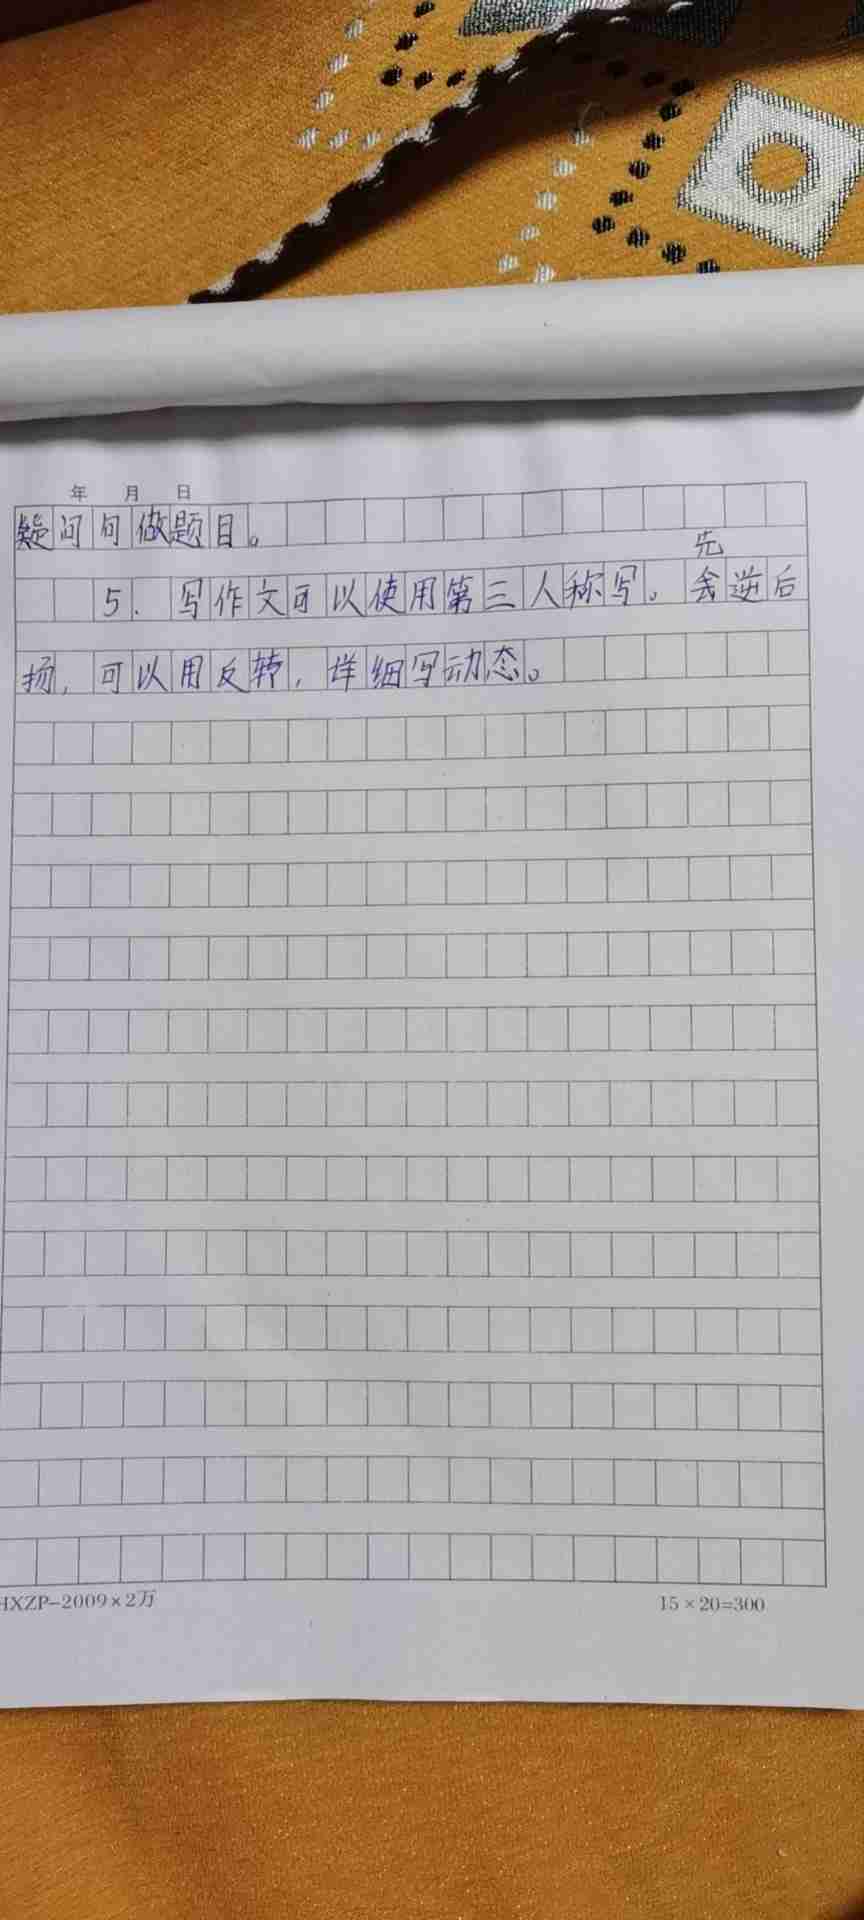 年 月 日
疑问句做题目。
先
5. 写作文可以使用第三人称写。逆后
扬,可以用反转,详细写动态。
HXZP-2009×2万
15×20=300